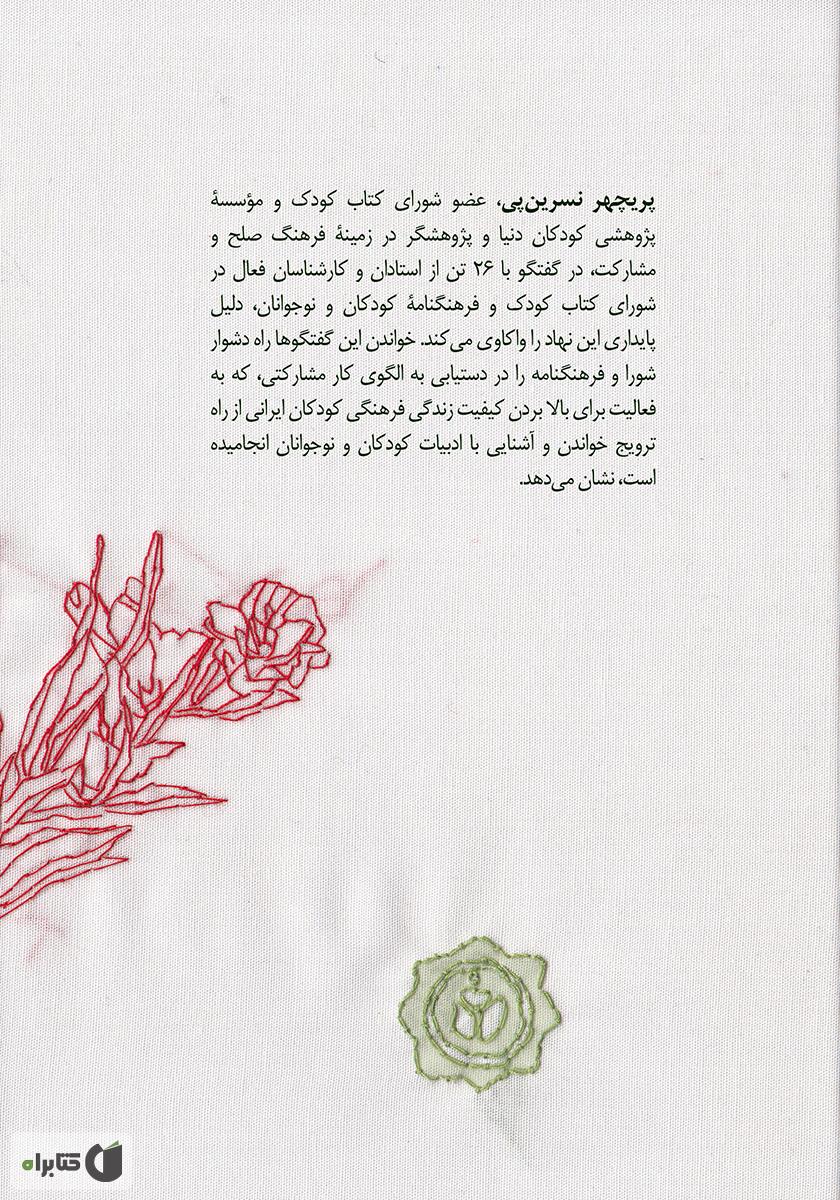 پریچهر نسرین‌پی، عضو شورای کتاب کودک و مؤسسهٔ
پژوهشی کودکان دنیا و پژوهشگر در زمینهٔ فرهنگ صلح و
مشارکت، در گفتگو با ۲۶ تن از استادان و کارشناسان فعال در
شورای کتاب کودک و فرهنگنامهٔ کودکان و نوجوانان، دلیل
پایداری این نهاد را واکاوی می‌کند. خواندن این گفتگوها راه دشوار
شورا و فرهنگنامه را در دستیابی به الگوی کار مشارکتی، که به
فعالیت برای بالا بردن کیفیت زندگی فرهنگی کودکان ایرانی از راه
ترویج خواندن و آشنایی با ادبیات کودکان و نوجوانان انجامیده
است، نشان می‌دهد.
کتابراه